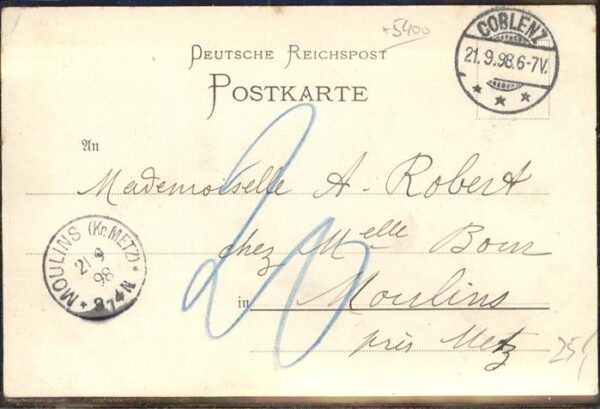 +5400
COBLENZ
21.9.98.6-7V.
DEUTSCHE REICHSPOST
POSTKARTE
An
Mademoiselle A. Robert
chez Melle Bour
MOULINS (Kr. METZ)
21 9
98
in Moulins
près Metz
20
25